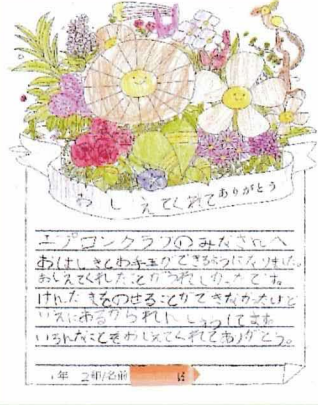 おしえてくれてありがとう
エプロンクラブのみなさんへ
おはじきとお手玉ができるようになりました。
おしえてくれたことがうれしかったです。
けん玉をのせることができなかったけど
いえにあるかられんしゅうしてます。
いろんなことをおしえてくれてありがとう。
1年 2組/名前